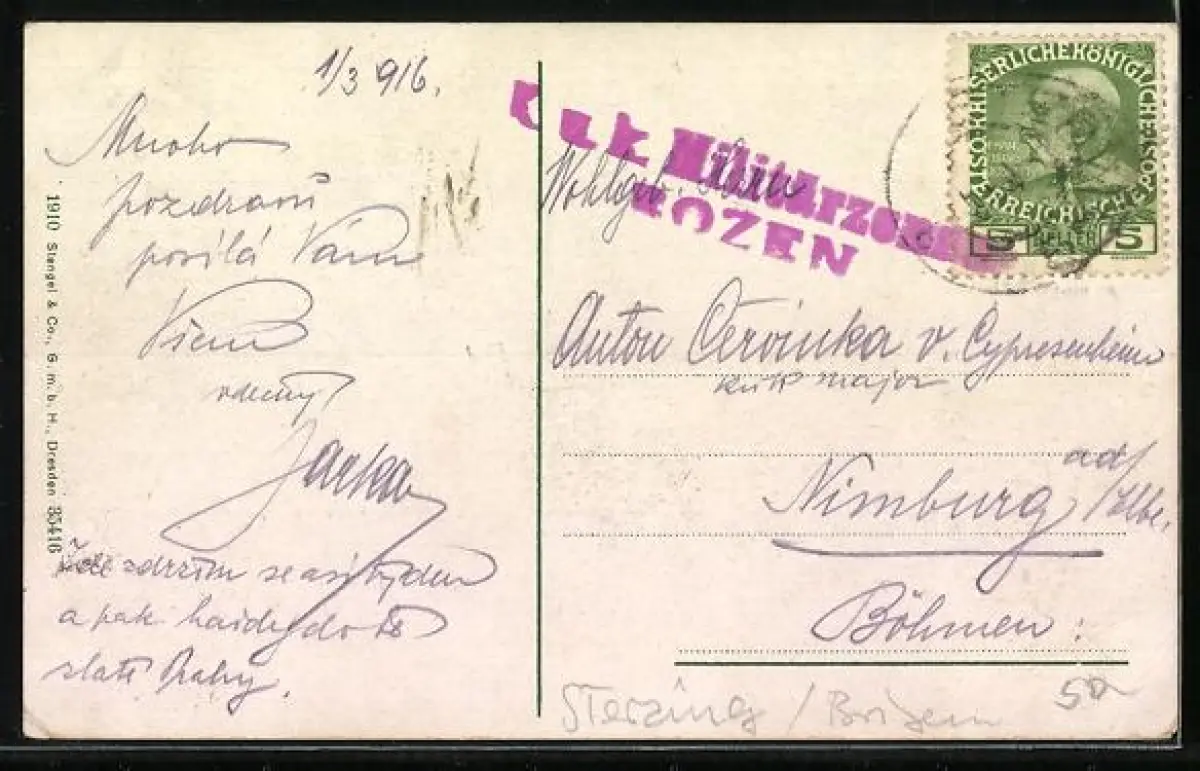 1/3 916.
Mnoho
pozdravů
posílá Vám
Všem
vděčný
Jarka
Zde zdržím se asi týden
a pak hajdy do té
zlaté Prahy.
1910 Stengel & Co., G. m. b. H., Dresden 35416
K. u. k. Militärzensur
BOZEN
KAISERLICHE KÖNIGLICHE ÖSTERREICHISCHE POST
5 HELLER 5
Wohlgeb. Herrn
Anton Červinka v. Cypressenheim
k u k major
Nimburg ad/Elbe.
Böhmen:
Sterzing / Brixen
50